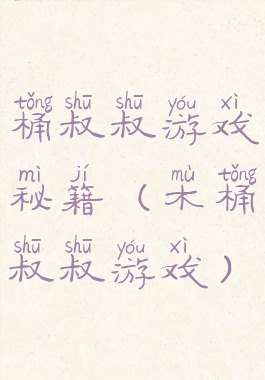 tǒng shū shū yóu xì
桶叔叔游戏
mì jí mù tǒng
秘籍（木桶
shū shū yóu xì
叔叔游戏）